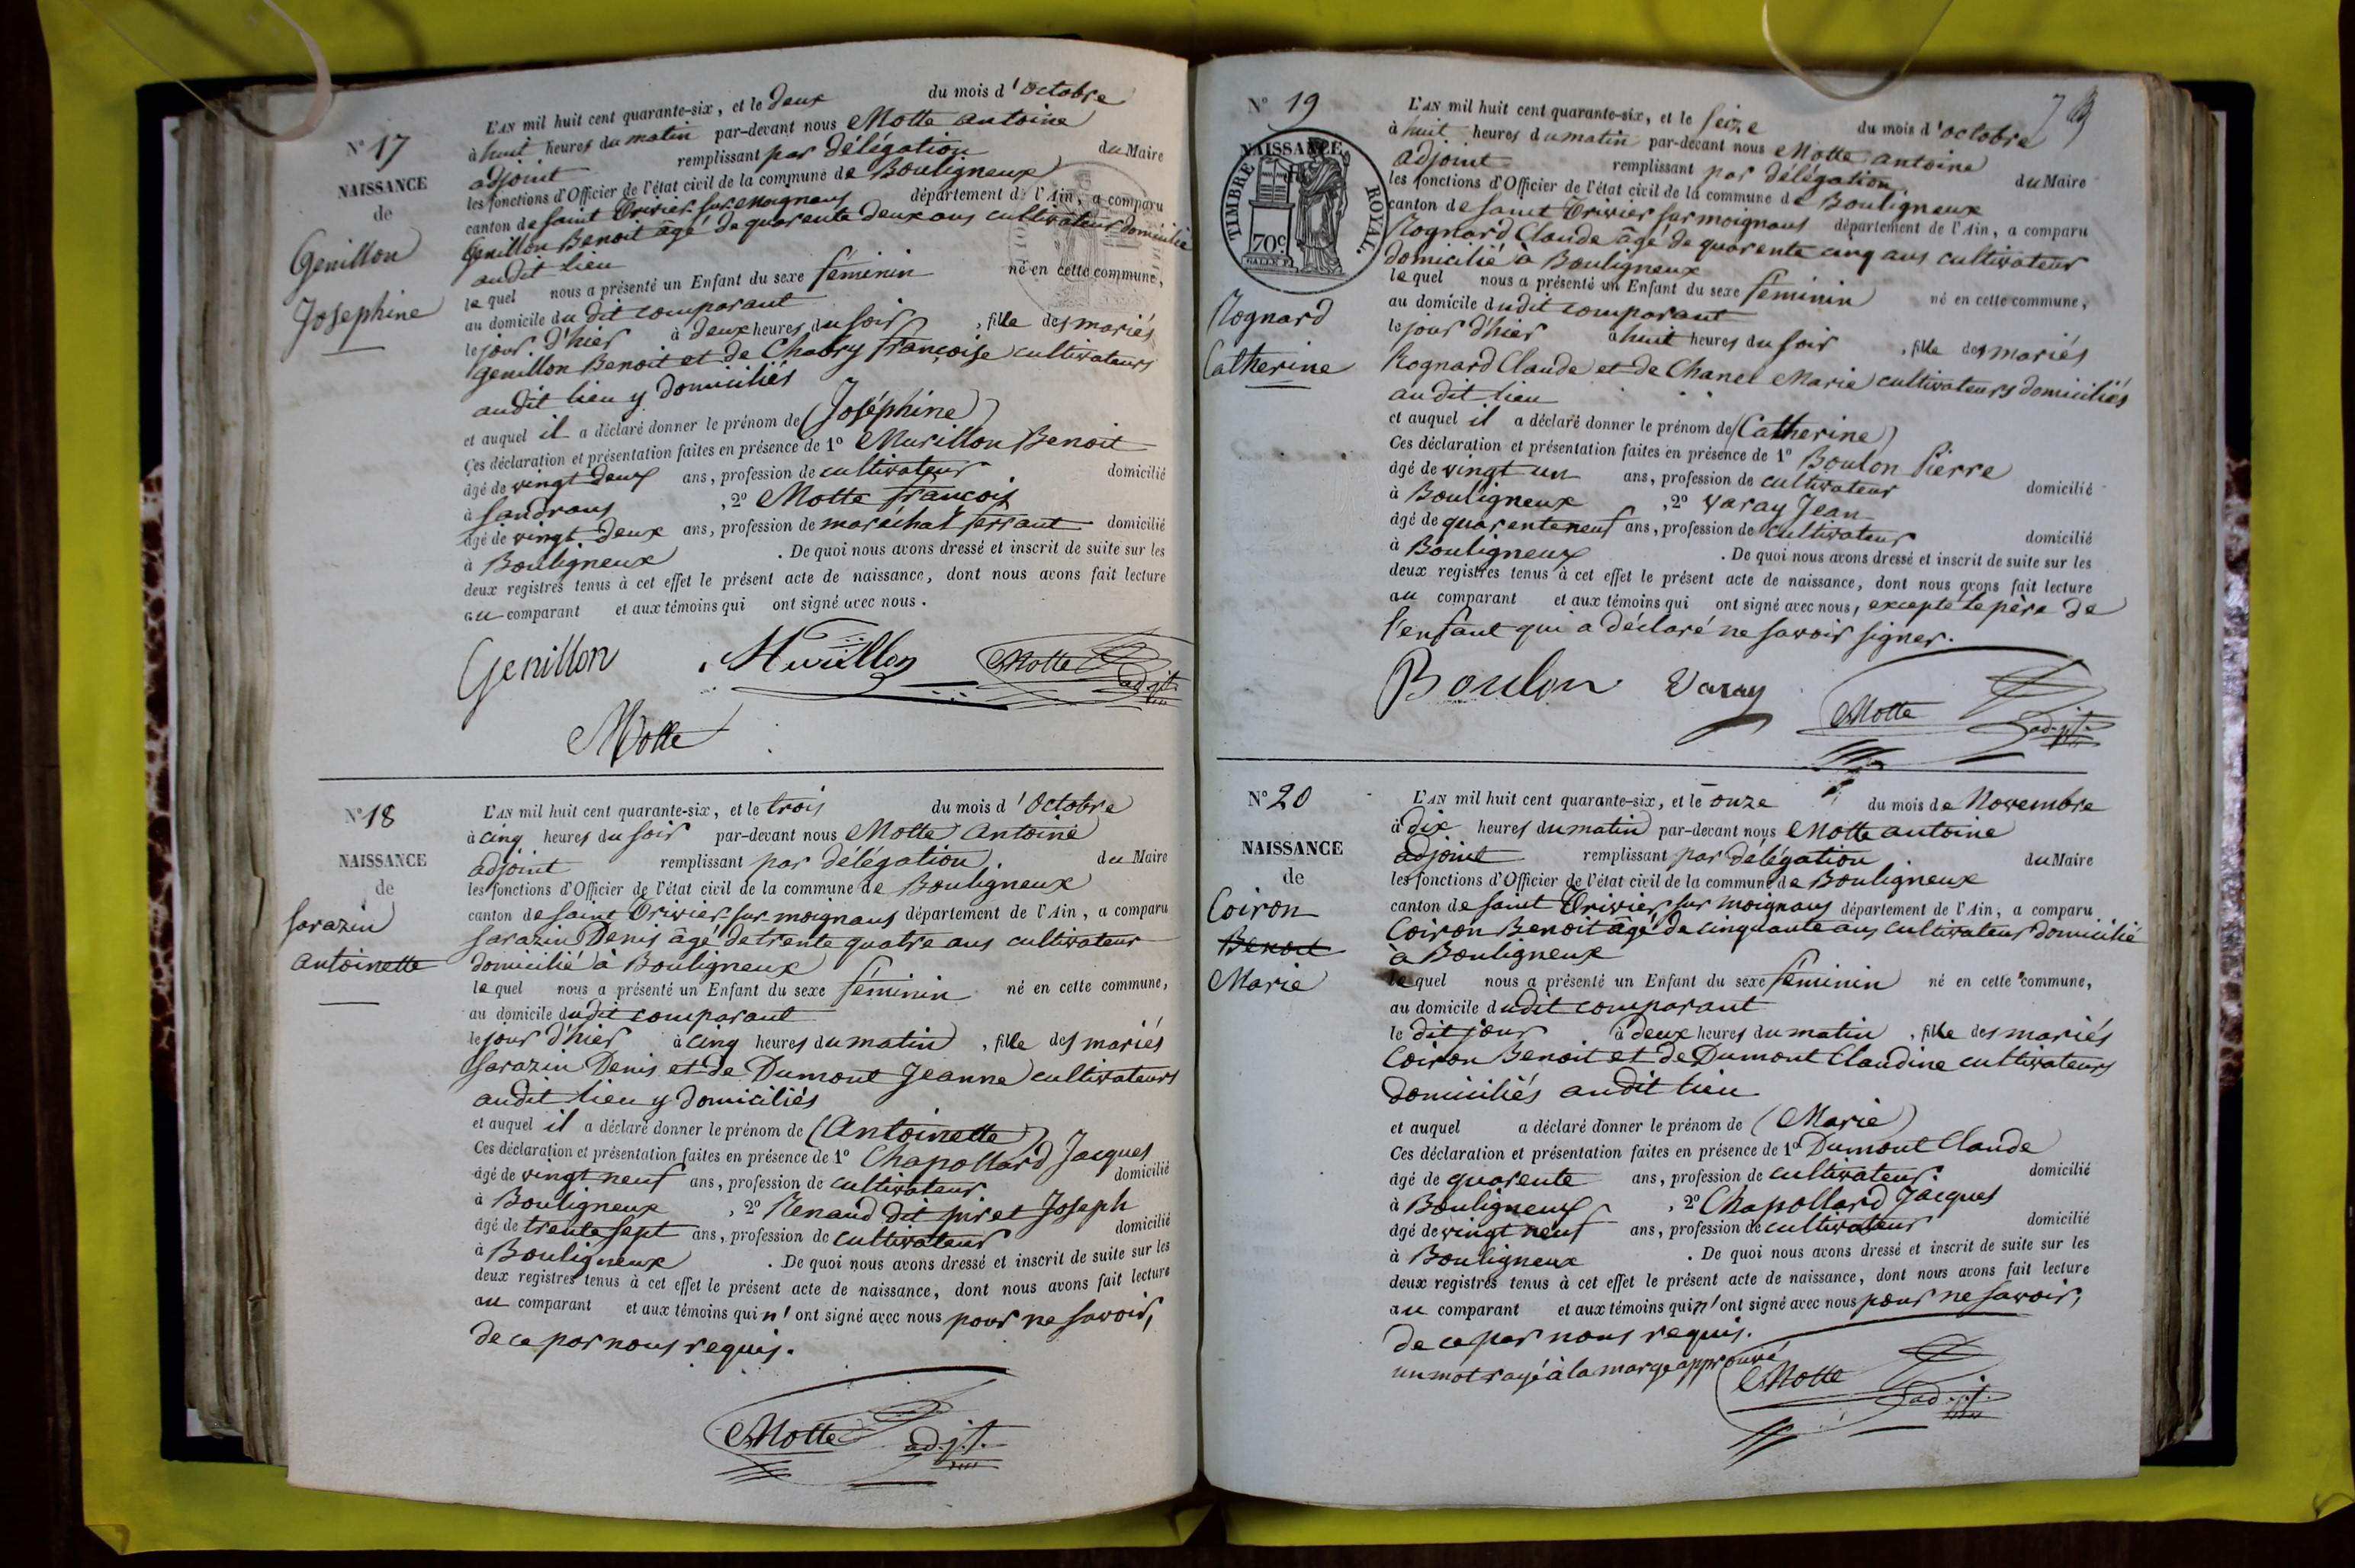 N° 17
NAISSANCE
de
Genillon
Josephine
L'AN mil huit cent quarante-six, et le deux du mois d'octobre
à huit heures du matin par-devant nous Motte antoine
adjoint remplissant par délégation du Maire
les fonctions d'Officier de l'état civil de la commune de Bouligneux
canton de saint Trivier sur moignans département de l'Ain, a comparu
Genillon Benoit âgé de quarente deux ans cultivateur domicilié
audit lieu
lequel nous a présenté un Enfant du sexe féminin né en cette commune,
au domicile du dit comparant
le jour d'hier à deux heures du soir, fille des mariés
genillon Benoit et de Chabry françoise cultivateurs
audit lieu y domiciliés
et auquel il a déclaré donner le prénom de (Joséphine)
Ces déclaration et présentation faites en présence de 1° Murillon Benoit
âgé de vingt deux ans, profession de cultivateur domicilié
à sandrans , 2° Motte françois
âgé de vingt deux ans, profession de maréchal ferrant domicilié
à Bouligneux . De quoi nous avons dressé et inscrit de suite sur les
deux registres tenus à cet effet le présent acte de naissance, dont nous avons fait lecture
au comparant et aux témoins qui ont signé avec nous.
Genillon Murillon Motte adjt
Motte
N° 18
NAISSANCE
de
sarazin
antoinette
L'AN mil huit cent quarante-six, et le trois du mois d'Octobre
à cinq heures du soir par-devant nous Motte Antoine
adjoint remplissant par délégation. du Maire
les fonctions d'Officier de l'état civil de la commune de Bouligneux
canton de saint Trivier sur moignans département de l'Ain, a comparu
sarazin Denis âgé de trente quatre ans cultivateur
domicilié à Bouligneux
lequel nous a présenté un Enfant du sexe féminin né en cette commune,
au domicile dudit comparant
le jour d'hier à cinq heures du matin, fille des mariés
sarazin Denis et de Dumont Jeanne cultivateurs
audit lieu y domiciliés
et auquel il a déclaré donner le prénom de (Antoinette)
Ces déclaration et présentation faites en présence de 1° Chapollard Jacques
âgé de vingt neuf ans, profession de cultivateur domicilié
à Bouligneux , 2° Renaud dit piret Joseph
âgé de trente sept ans, profession de cultivateur domicilié
à Bouligneux . De quoi nous avons dressé et inscrit de suite sur les
deux registres tenus à cet effet le présent acte de naissance, dont nous avons fait lecture
au comparant et aux témoins qui n'ont signé avec nous pour ne savoir,
de ce par nous requis.
Motte adjt.
N° 19
NAISSANCE
TIMBRE ROYAL
70c
Rognard
Catherine
L'AN mil huit cent quarante-six, et le seize du mois d'octobre
à huit heures du matin par-devant nous Motte antoine
adjoint remplissant par délégation. du Maire
les fonctions d'Officier de l'état civil de la commune de Bouligneux
canton de saint Trivier sur moignans département de l'Ain, a comparu
Rognard Claude âgé de quarente cinq ans cultivateur
domicilié à Bouligneux
lequel nous a présenté un Enfant du sexe féminin né en cette commune,
au domicile dudit comparant
le jour d'hier à huit heures du soir, fille des mariés
Rognard Claude et de Chanel Marie cultivateurs domiciliés
audit lieu
et auquel il a déclaré donner le prénom de (Catherine)
Ces déclaration et présentation faites en présence de 1° Boulon Pierre
âgé de vingt un ans, profession de cultivateur domicilié
à Bouligneux , 2° varay Jean
âgé de quarente neuf ans, profession de cultivateur domicilié
à Bouligneux . De quoi nous avons dressé et inscrit de suite sur les
deux registres tenus à cet effet le présent acte de naissance, dont nous avons fait lecture
au comparant et aux témoins qui ont signé avec nous, excepté le père de
l'enfant qui a déclaré ne savoir signer.
Boulon Varay Motte adjt.
N° 20
NAISSANCE
de
Coiron
Benoit
Marie
L'AN mil huit cent quarante-six, et le onze du mois de Novembre
à dix heures du matin par-devant nous Motte antoine
adjoint remplissant par délégation. du Maire
les fonctions d'Officier de l'état civil de la commune de Bouligneux
canton de saint Trivier sur moignans département de l'Ain, a comparu
Coiron Benoit âgé de cinquante ans cultivateur domicilié
à Bouligneux
lequel nous a présenté un Enfant du sexe féminin né en cette commune,
au domicile dudit comparant
le dit jour à deux heures du matin, fille des mariés
Coiron Benoit et de Dumont Claudine cultivateurs
domiciliés audit lieu
et auquel a déclaré donner le prénom de (Marie)
Ces déclaration et présentation faites en présence de 1° Dumont Claude
âgé de quarente ans, profession de cultivateur. domicilié
à Bouligneux , 2° Chapollard Jacques
âgé de vingt neuf ans, profession de cultivateur domicilié
à Bouligneux . De quoi nous avons dressé et inscrit de suite sur les
deux registres tenus à cet effet le présent acte de naissance, dont nous avons fait lecture
au comparant et aux témoins qui n'ont signé avec nous pour ne savoir,
de ce par nous requis.
un mot rayé à la marge approuvé
Motte adjt.